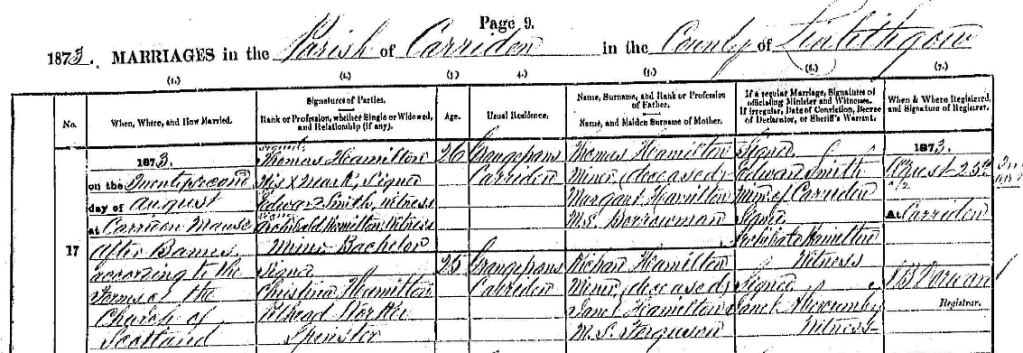 Page 9.
1873. MARRIAGES in the Parish of Carriden in the County of Linlithgow
(1.) (2.) (3.) 4. (5.) (6.) (7.)
No.
When, Where, and How Married.
Signatures of Parties.
Rank or Profession, whether Single or Widowed, and Relationship (if any).
Age.
Usual Residence.
Name, Surname, and Rank or Profession of Father.
Name, and Maiden Surname of Mother.
If a regular Marriage, Signatures of officiating Minister and Witnesses.
If irregular, Date of Conviction, Decree of Declarator, or Sheriff's Warrant.
When & Where Registered, and Signature of Registrar.
17
1873.
on the Twenty second
day of August
at Carriden Manse
After Banns
according to the
Forms of the
Church of
Scotland
Signed
Thomas Hamilton
His X Mark, Signed
Edward Smith, witness
Signed
Archibald Hamilton, Witness
Miner Bachelor
Signed
Christina Hamilton
Pithead Worker
Spinster
26
25
Grangepans
Carriden
Grangepans
Carriden
Thomas Hamilton
Miner (deceased)
Margaret Hamilton
M.S. Borrowman
Richard Hamilton
Miner (deceased)
Janet Hamilton
M.S. Ferguson
Signed
Edward Smith
Minr. of Carriden
Signed
Archibald Hamilton
Witness
Signed
Janet Abercromby
Witness
1873.
August 25th
At Carriden
Registrar.